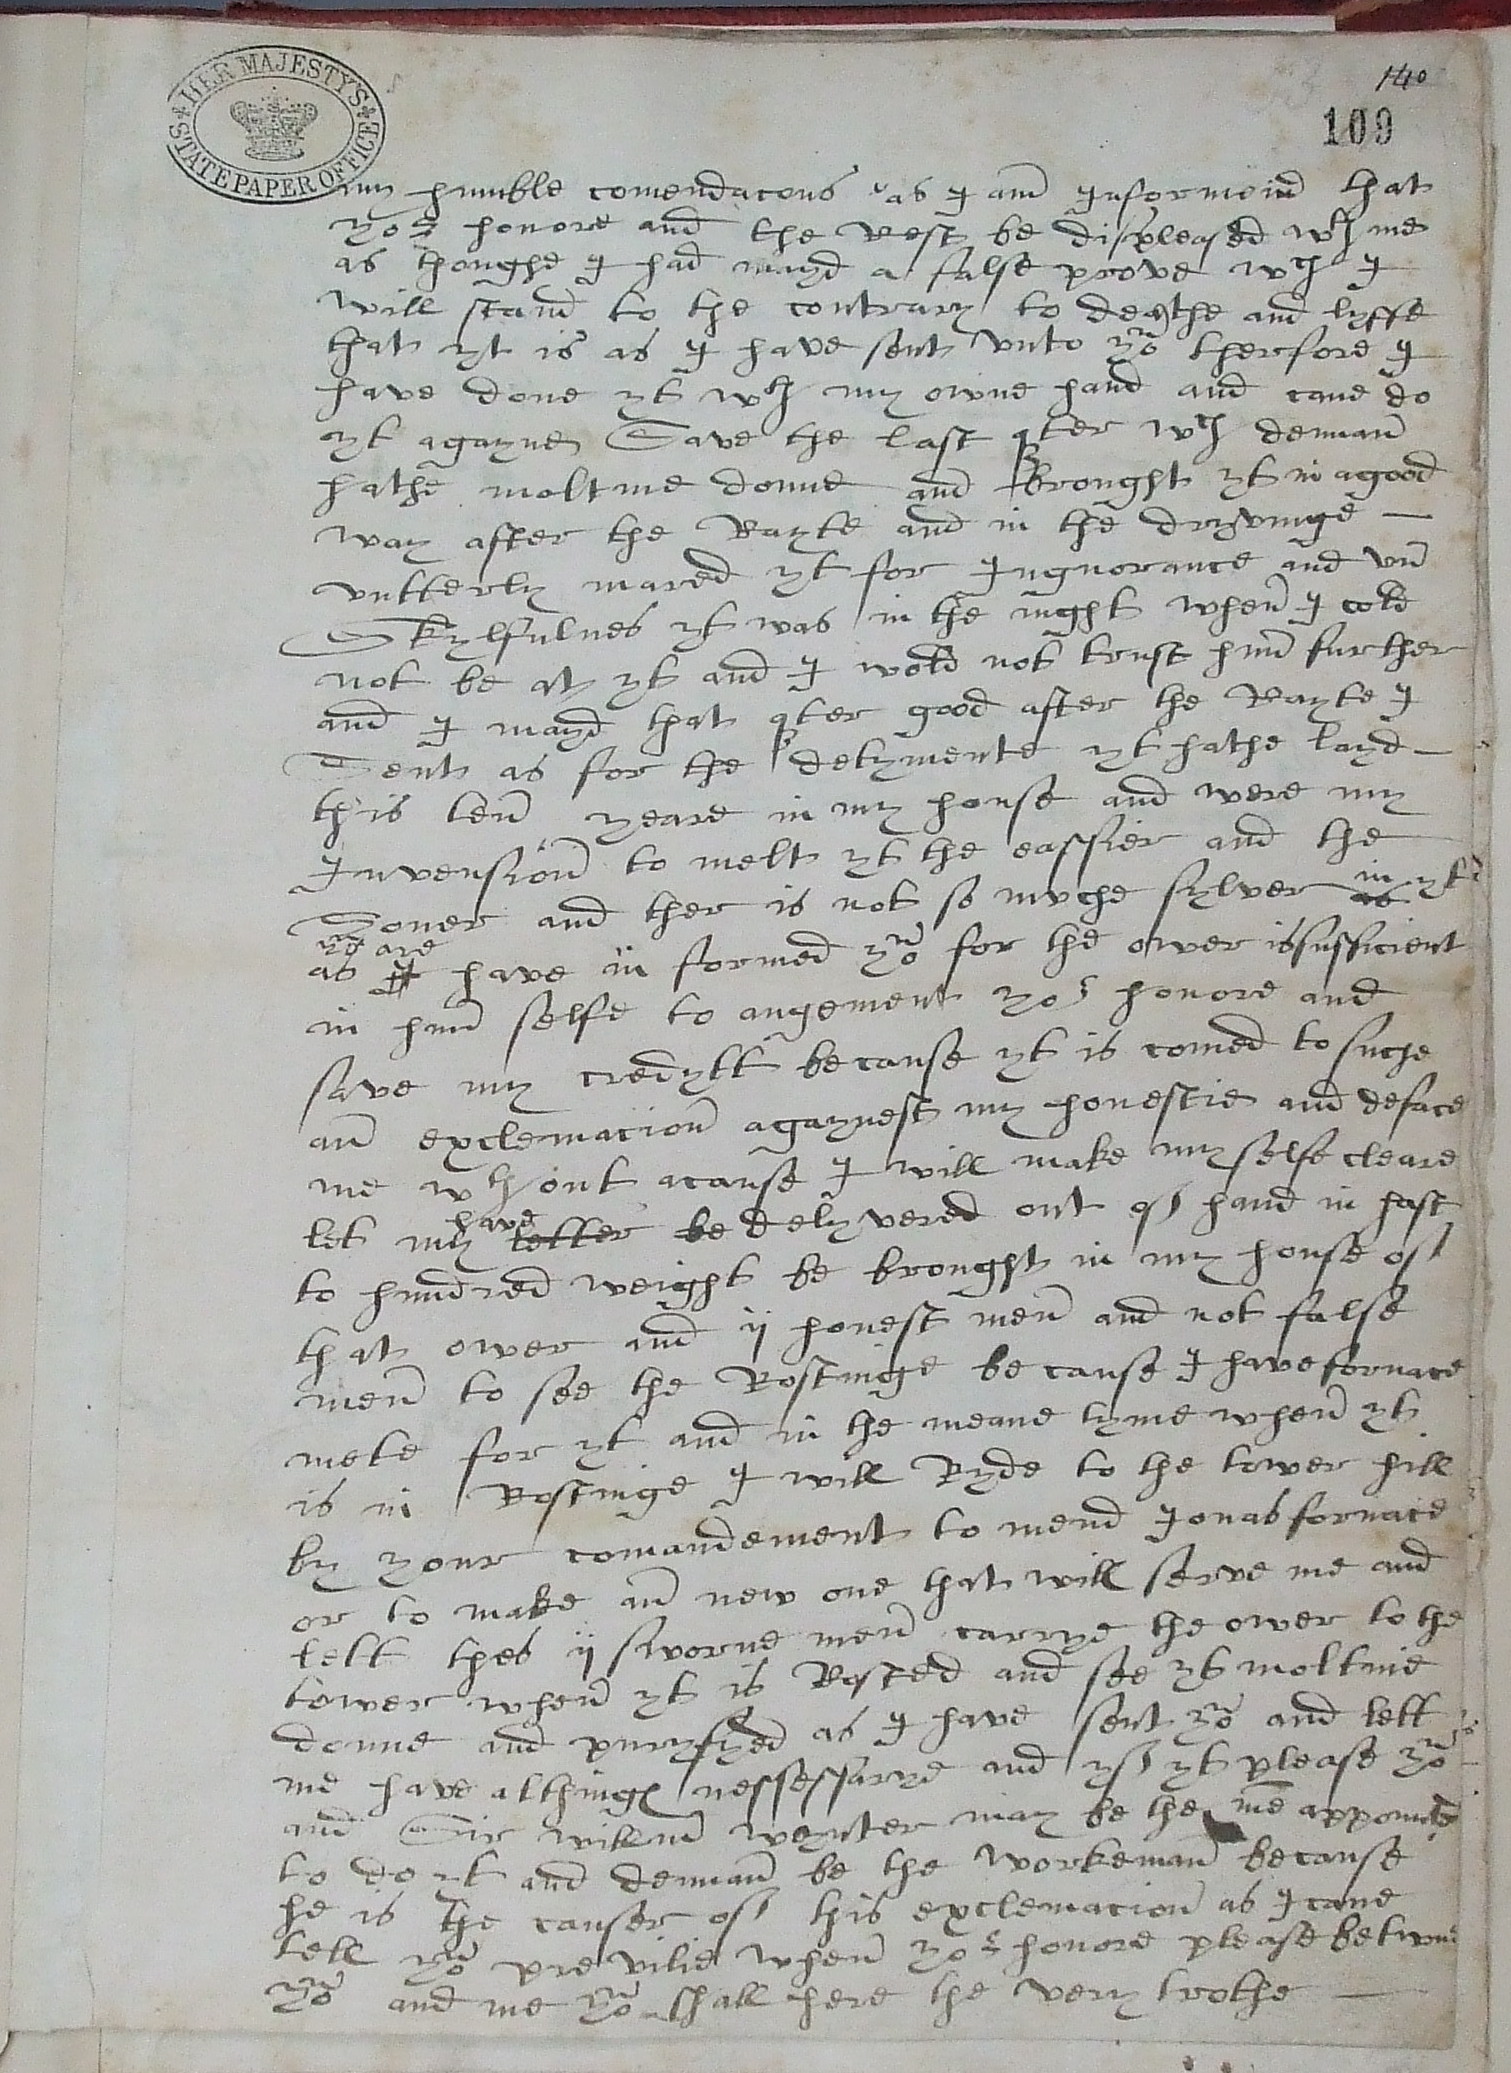 HER MAJESTY'S STATE PAPER OFFICE
140
109
my humble comendacons as I am Informeid that
yor honore and the Rest be displeased wth me
as thoughe I had mayd a false prove wch I
will stand to the contrary to deathe and lyffe
that yt is as I have sent vnto you therfore I
have done yt wth my owne hand and cane do
yt agayne Save the last qter wch denman
hathe moltine donne and Brought yt in a good
way after the Rayte and in the dryvinge —
vntterly mared yt for Ingnorance and vn
Skylfulnes yt was in the nyght when I cold
not be at yt and I wold not trust him further
and I mayd that qter good after the Rayte I
Sent as for the detymente yt hathe layd —
this ten yeare in my house and were my
Invension to melt yt the eassier and the
Soner and ther is not so muche sylver as in yt
as I ye are have in formed you for the ower is sufficient
in him selfe to angement yor honore and
save my credytt because yt is comed to suche
an exclemacion agaynest my honestie and deface
me wthout a cause I will make my selfe cleare
let my letter have be delyvered out of hand in hast
to hundred weight be brought in my house of
that ower and ij honest men and not false
men to see the Rostinge because I have fornace
mete for yt and in the meane tyme when yt
is in Rostinge I will Ryde to the tower hill
by your comandement to mend Jonas fornace
or to make an new one that will serve me and
lett thes ij sworne men carrye the ower to the
tower when yt is Rosted and see yt moltine
donne and puryfyed as I have sent you and lett
me have althings nessessarye and yf yt please you
and Sir willm wynter may be the me appointed
to do yt and denman be the workeman because
he is the causer of this exclemacion as I cane
tell you previlie when yor honore please betwne
you and me you shall here the very trothe —